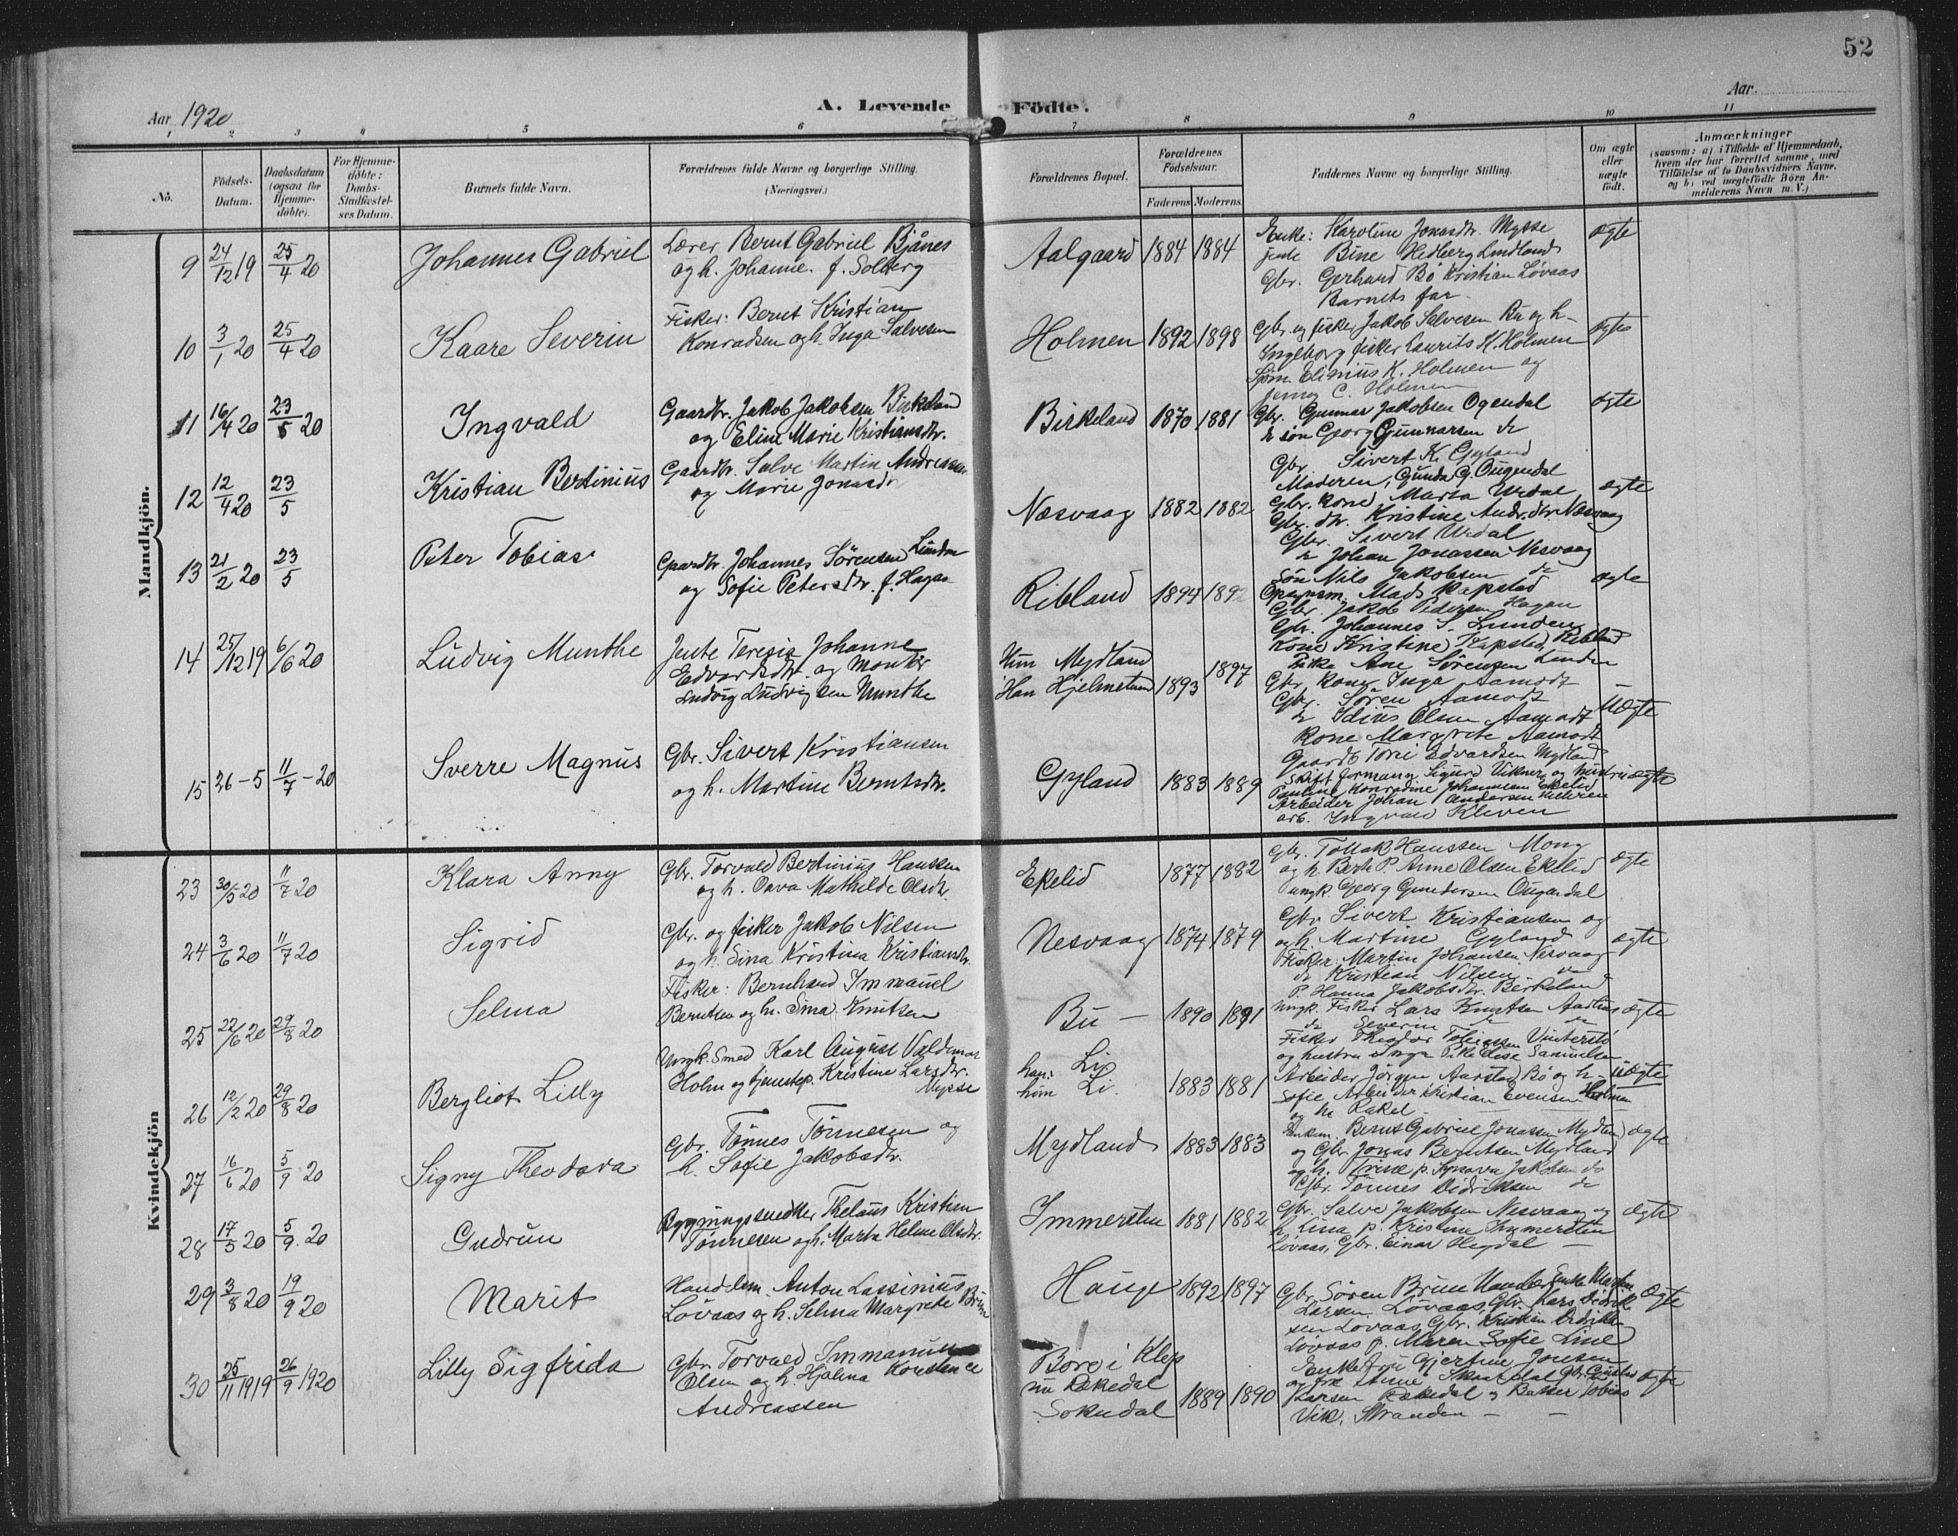 52
Aar 1920
A. Levende Födte.
Aar
1 2 3 4 5 6 7 8 9 10 11
No.
Födsels-Datum.
Daabsdatum (ogsaa for Hjemme-döbte).
For Hjemme-döbte: Daabs-Stadfæstel-ses Datum.
Barnets fulde Navn.
Forældrenes fulde Navne og borgerlige Stilling. (Næringsvei.)
Forældrenes Bopæl.
Forældrenes Födselsaar.
Faderens Moderens
Faddernes Navne og borgerlige Stilling.
Om ægte eller uægte födt.
Anmærkninger
(saasom: a) i Tilfælde af Hjemmedaab,
hvem der har forrettet samme, med
Tilföielse af to Daabsvidners Navne,
og b) ved uægtefödte Börn An-
melderens Navn m. V.)
Mandkjön.
9 24/12 19 25/4 20 Johannes Gabriel
Lærer Bernt Gabriel Bjånes
og h. Johanne f. Solberg
Aalgaard 1884 1884
Enke: Karoline Jonasdr. Mysse
jente Bine Hedberg Lindland
Gbr. Gerhard Bö Kristian Lövaas
Barnets far.
ægte
10 3/1 20 25/4 20 Kaare Severin
Fisker: Bernt Kristian
Konradsen og h. Inga Salvesen
Holmen 1892 1898
Gbr. og fisker Jakob Salvesen Bu og h.
Ingeborg fisker Laurits K. Holmen
Elinius K. Holmen og
C. Holmen
ægte
11 16/4 20 23/5 20 Ingvald
Gaardbr. Jakob Jakobsen Birkeland
og Eline Marie Kristiansdr.
Birkeland 1870 1881
Gbr. Gunnar Jakobsen Ogendal
do sön Georg Gunnarsen do
Gbr. Sivert K. Gyland
Moderen, Gunda G. Ougendal
ægte
12 12/4 20 23/5 Kristian Bertinius
Gaardbr. Salve Martin Andreassen
og Marie Jonasdr
Næsvaag 1882 1882
Gbr. kone Marta Urdal
Gbr. dr. Kristine Andr.dtr. Næsvaag
Gbr. Sivert Urdal
do Johan Jonassen Nesvaag
Sön Nils Jakobsen do
ægte
13 21/2 20 23/5 Peter Tobias
Gaardbr. Johannes Sörensen Lunden
og Sofie Petersdr. f. Hagan
Ribland 1894
Mads Kapstad
Gbr. Jakob Pedersen Hagan
Gbr. Johannes S. Lunden
Kone Kristine Kapstad Ribland
Pike Ane Sörensen Lunden
ægte
14 25/12 19 6/6 20 Ludvig Munthe
Jente Teresie Johanne
Edvardsdtr. og Montör
Ludvig Ludvigsen Munthe
Hun Mydland
Han Hjelmeland 1893 1897
Gbr. kone Inga Aamodt
Gbr. Sören Aamodt
do Idius Olsen Aamodt
Kone Margrete Aamodt
Gaardb. Tore Edvardsen Mydland
Uægte
15 26-5 11/7-20 Sverre Magnus
Gbr. Sivert Kristiansen
og h. Martine Berntsdtr.
Gyland 1883 1889
Skift formann Sigurd Vikner og hustru
Pauline Konradine Johannesen Ekelid
Arbeider Johan Andersen
arb. Ingvald Kleven
ægte
Kvindekjön
23 30/5 20 11/7 20 Klara Anny
Gbr. Torvald Bertinius Hanssen
og h. Oava Mathilde Olsdtr.
Ekelid 1877 1882
Gbr. Tollak Hanssen Mong
og h. Berte P. Anne Olsen Ekelid
ungk. Georg Gundersen Ougendal
ægte
24 3/6 20 11/7 20 Sigrid
Gbr. og fisker Jakob Nilsen
og h. Sina Kristina Kristiansdtr.
Nesvaag 1874 1879
Gbr. Sivert Kristiansen og
og h. Martine Gyland
Fisker: Martin Johansen Nesvaag
do Kristian Nilsen do
P. Hanna Jakobsdtr. Berkeland
ægte
25 22/6 20 29/8 20 Selma
Fisker: Bernhard Immanuel
Berntsen og h. Sina Knutsen
Bu — 1890 1891
Ungk. Fisker Lars Knutsen Aadland
do Severin do do
Fisker Theodor Tobiassen Vinterstö
og hustru Inga Pike Elise Samuelsen
ægte
26 12/2 20 29/8 20 Bergliot Lilly
Ungk. Smed Karl August Valdemar
Holm og tjenstep. Kristine Larsdtr. Mysse
han: Li
hun Li. 1883 1881
Arbeider Jörgen Aarstad Bö og h.
Sofie Arbeider Kristian Evensen Holmen
og h. Rakel
uægte
27 16/6 20 5/9 20 Signy Theodora
Gbr. Tönnes Tönnesen og
h. Sofie Jakobsdtr.
Mydland 1883 1883
Bernt Gabriel Jonassen Mydland
og Gbr. Jonas Berntsen Mydland
og h. Trine p. Synøva Jakobsen do
Gbr. Tönnes Didriksen do
ægte
28 17/5 20 5/9. 20 Gudrun
Bygningssnedker Kristian
Tönnesen og h. Marta Helene Olsdtr.
Immersten 1881 1882
Gbr. Salve Jakobsen Nesvaag og
h. Lina p. Kristine Immersten
Lövaas, Gbr. Einar Hegdal —
ægte
29 3/8 20 19/9 20 Marit
Handlesm. Anton Lassinius
Lövaas og h. Selma Margrete Brun
Hauge 1892 1897
Gbr. Sören Brun Enke Marten
Larsen Lövaas, Gbr. Lars Didrik
sen Lövaas Gbr. Kristian Didriksen
Lövaas p. Maren Sofie Line
ægte
30 25/11 1919 26/9 1920 Lilly Sigfrida
Gbr. Torvald Immanuel
Olsen og h. Hjalma Konstance
Andreassen
Bore i Klep
nu Rekedal
Sokndal 1889 1890
Enkefru Gjertine Jonsen
og frk Anne Skaardal Gbr. Gustav
Larsen Rekedal og Bakker Tobias
Vik, Stranden — —
ægte